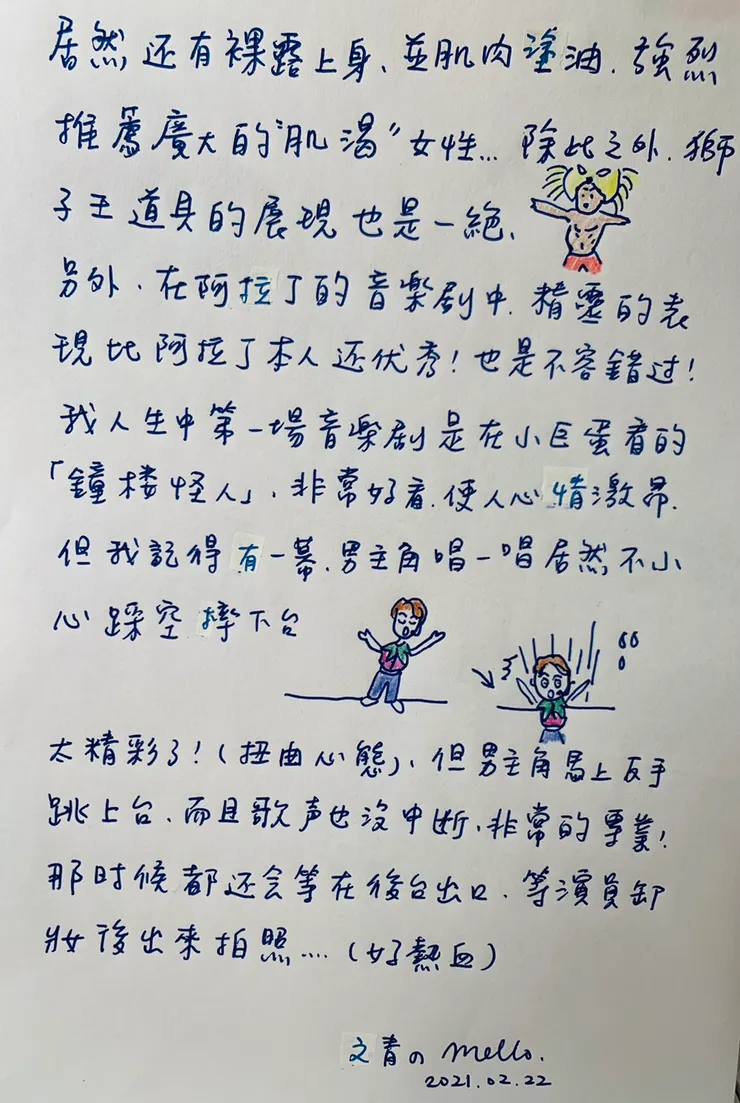 居然还有裸露上身、並肌肉塗油、強烈
推薦廣大的"肌渴"女性... 除此之外、獅
子王道具的展現也是一絕、
另外、在阿拉丁的音楽剧中、精靈的表
現比阿拉丁本人还优秀！也是不容錯过！
我人生中第一場音楽剧是在小巨蛋看的
「鐘楼怪人」、非常好看、使人心情激昂、
但我記得有一幕、男主角唱一唱居然不小
心踩空摔下台
太精彩了！(扭曲心態)、但男主角馬上反手
跳上台、而且歌声也沒中断、非常的專業！
那时候都还会等在後台出口、等演員卸
妝後出來拍照....(好熱血)
文青の mello.
2021.02.22